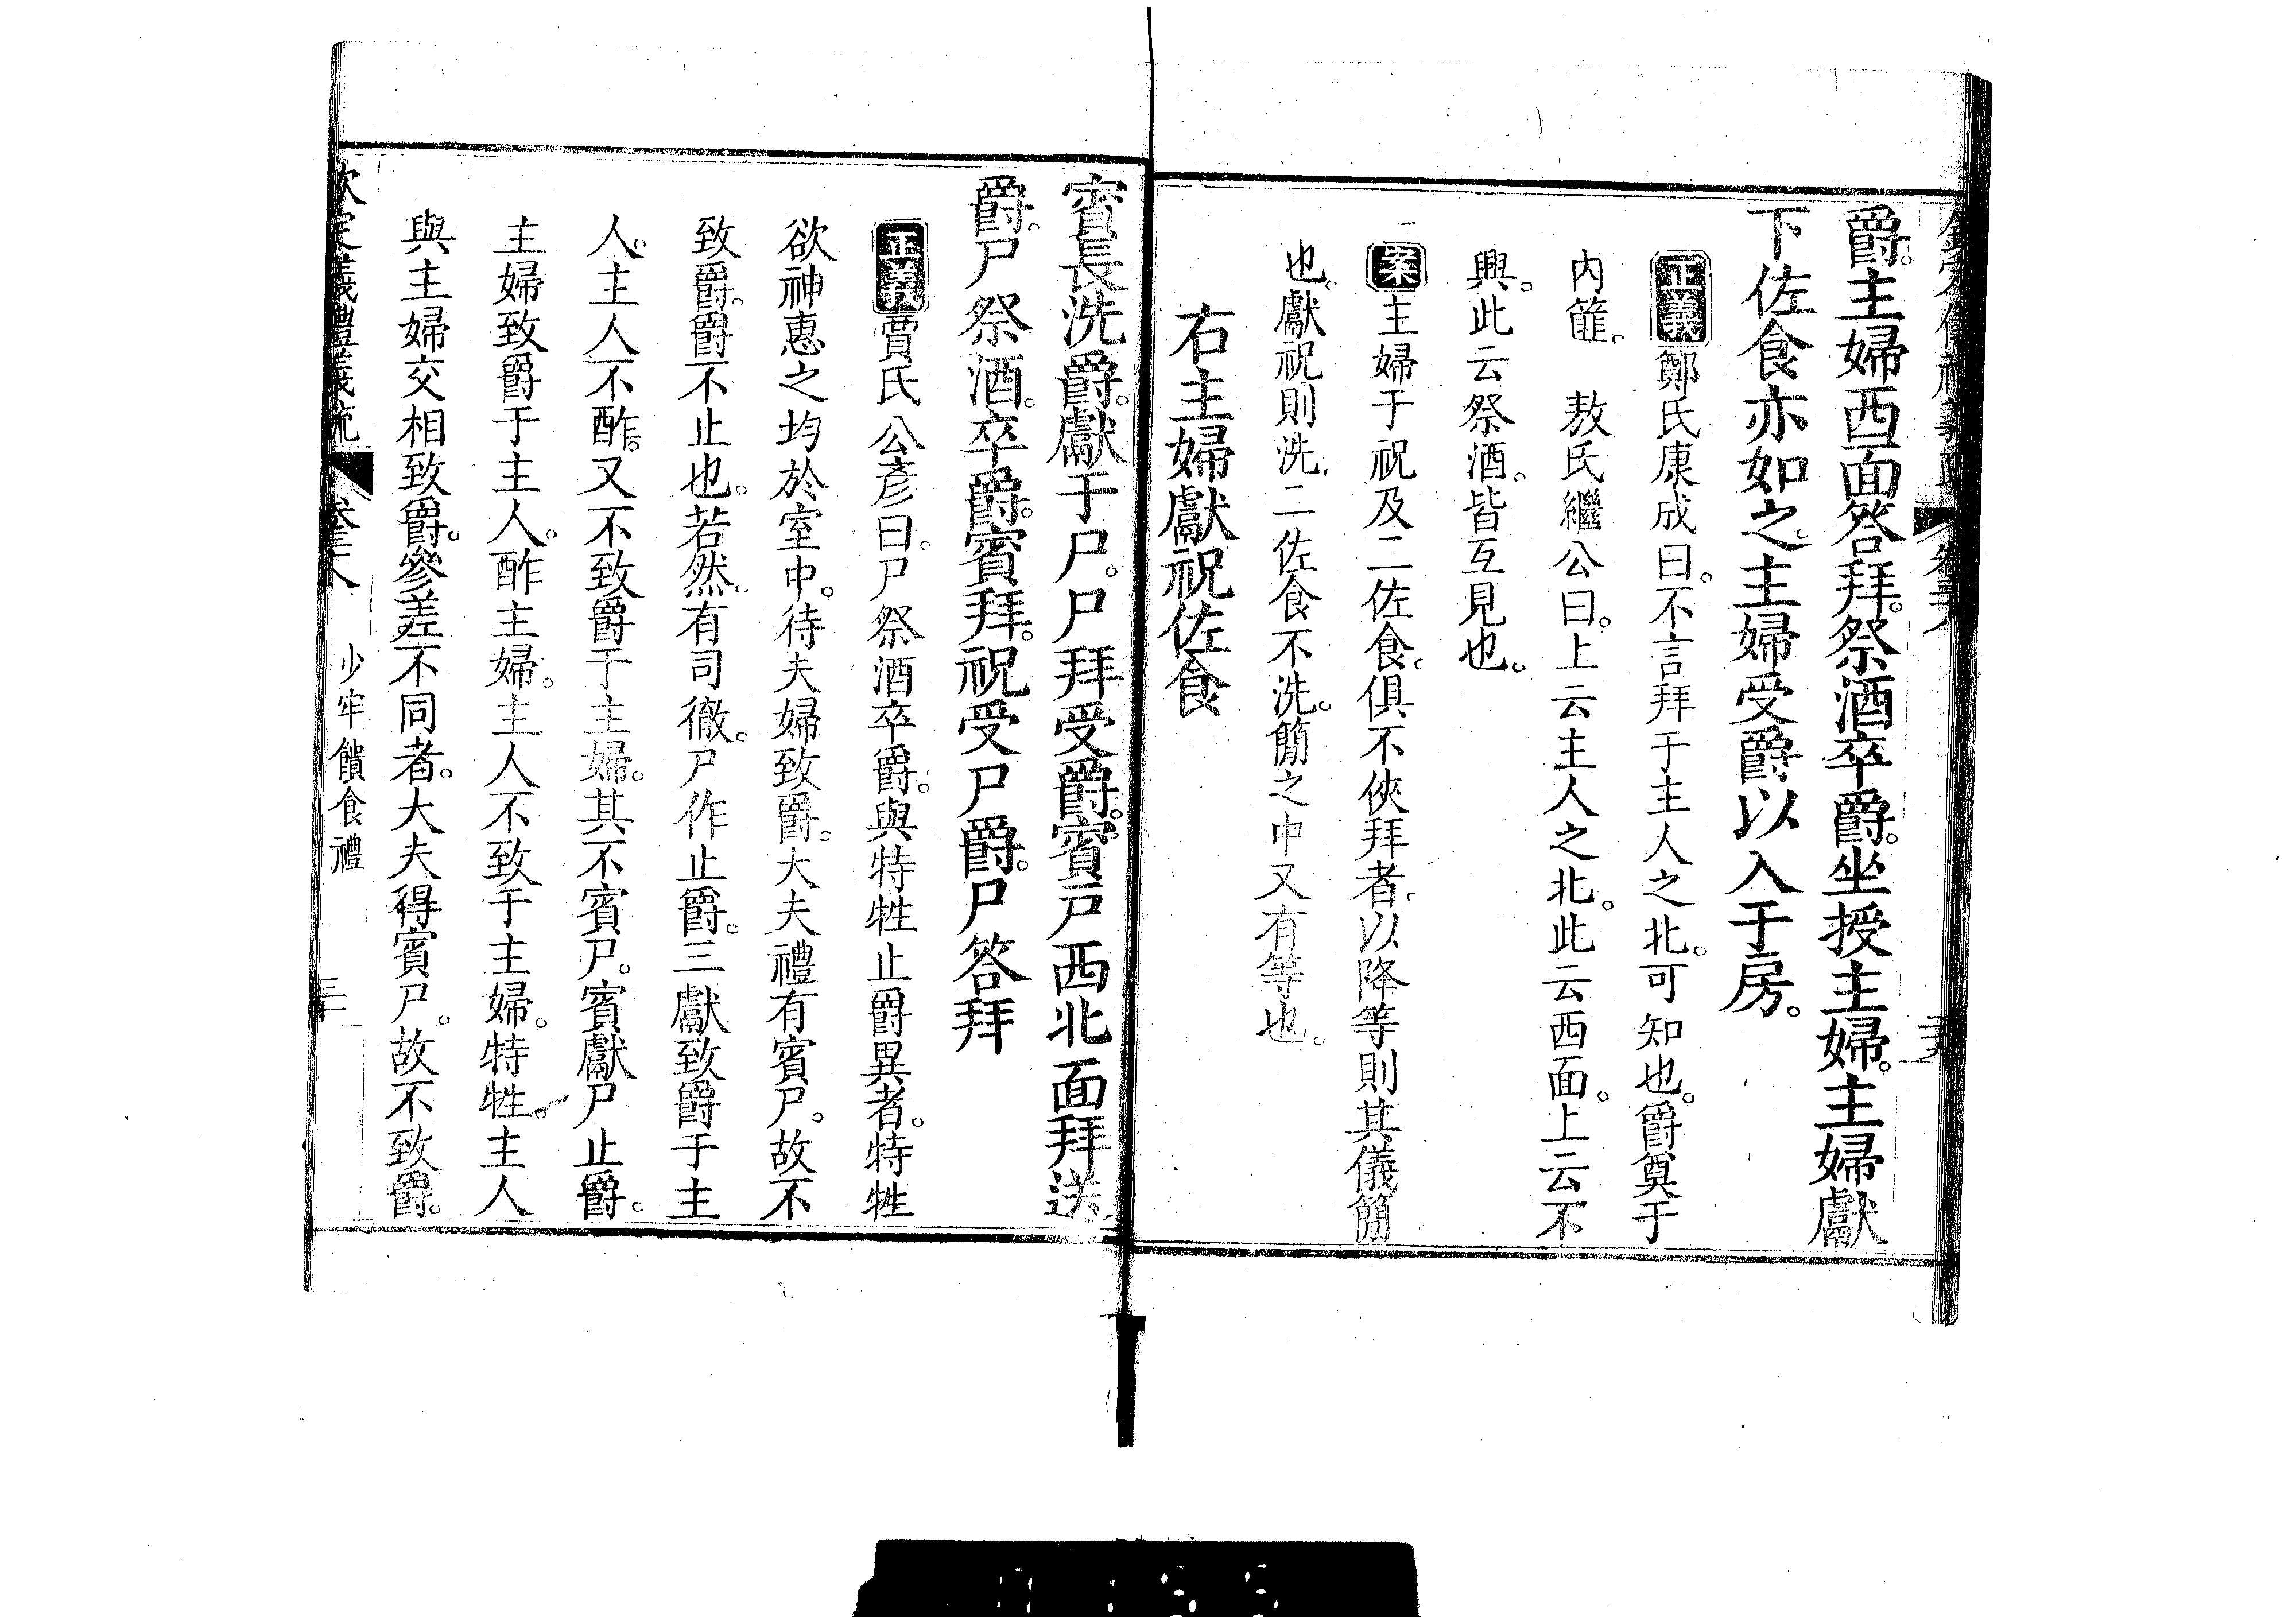 爵。主婦西面答拜。祭酒卒爵。坐授主婦。主婦獻
下佐食亦如之。主婦受爵以入于房。
正義鄭氏康成曰。不言拜于主人之北。可知也。爵奠于
內篚。 敖氏繼公曰。上云主人之北。此云西面。上云不
興。此云祭酒。皆互見也。
案主婦于祝及二佐食。俱不俠拜者。以降等則其儀簡
也。獻祝則洗。二佐食不洗。簡之中又有等也。
右主婦獻祝佐食
賓長洗爵。獻于尸。尸拜受爵。賓戶西北面拜送
爵。尸祭酒。卒爵。賓拜。祝受尸爵。尸答拜
正義賈氏公彥曰。尸祭酒卒爵。與特牲止爵異者。特牲
欲神惠之均於室中。待夫婦致爵。大夫禮有賓尸。故不
致爵。爵不止也。若然。有司徹。尸作止爵。三獻致爵于主
人。主人不酢。又不致爵于主婦。其不賓尸。賓獻尸止爵。
主婦致爵于主人。酢主婦。主人不致于主婦。特牲。主人
與主婦交相致爵。參差不同者。大夫得賓尸。故不致爵。
欽定儀禮義疏 卷三十八 少牢饋食禮